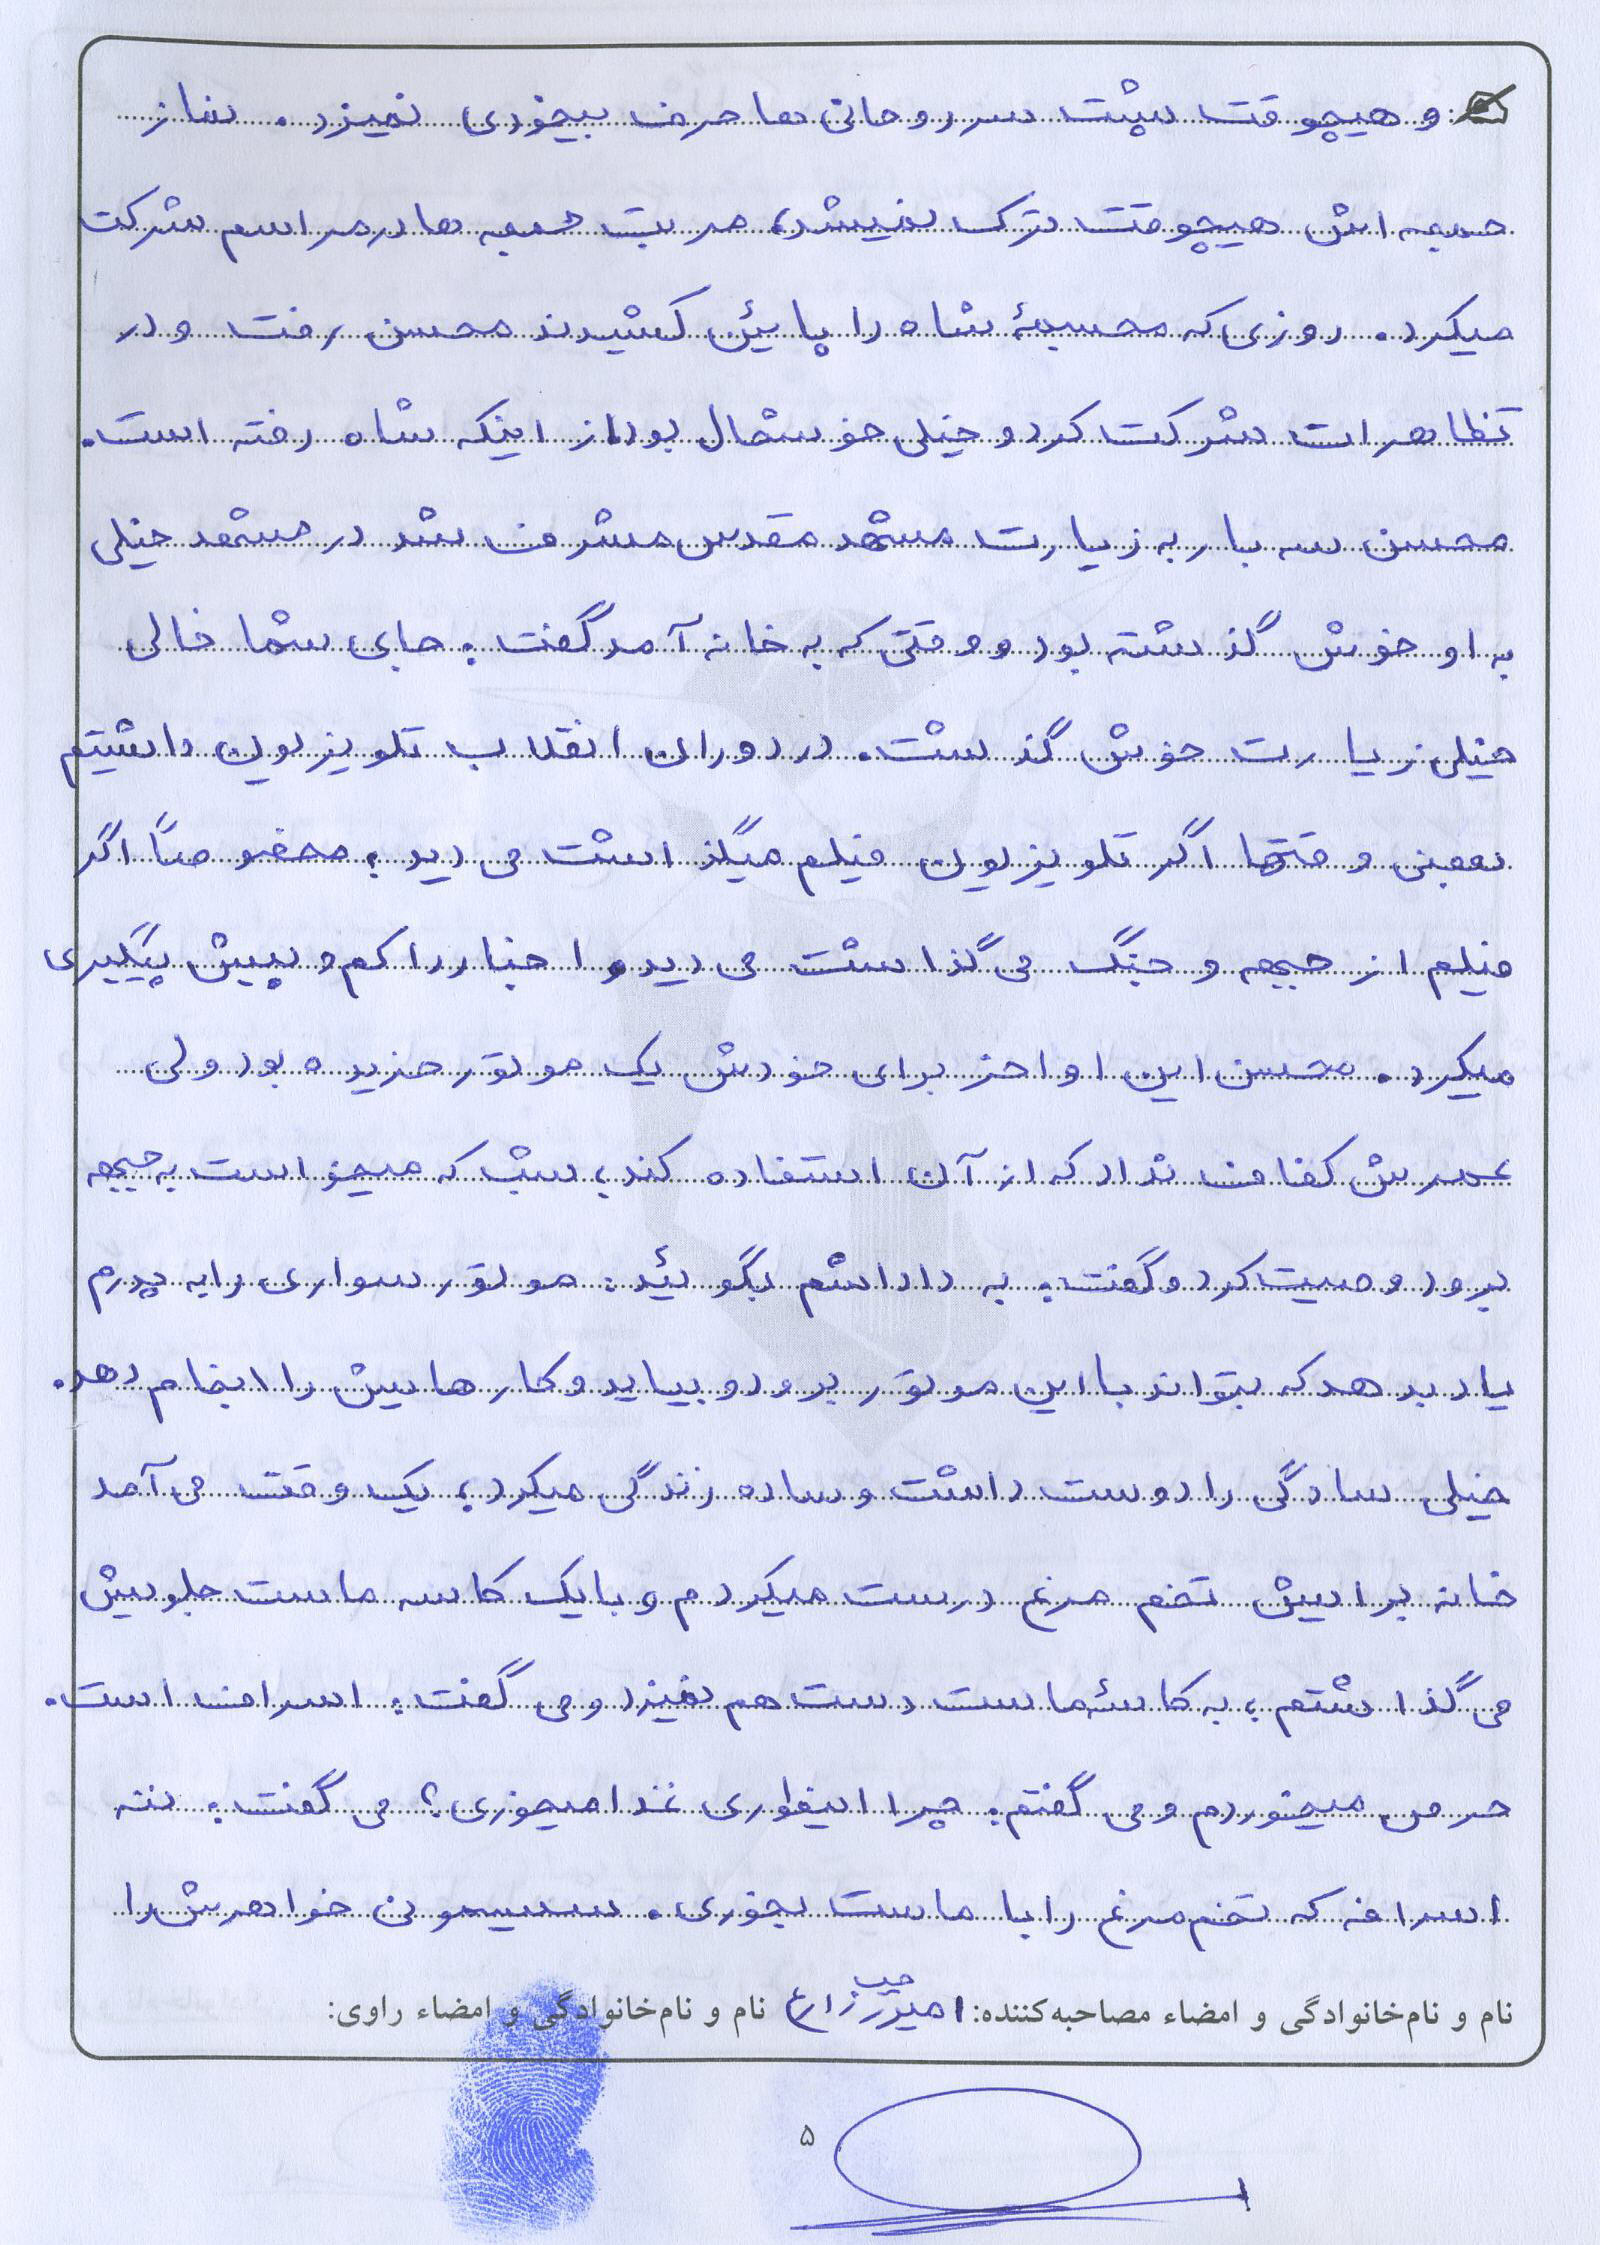 و هیچوقت پشت سر روحانی ها حرف بیخودی نمیزد. نماز
جمعه اش هیچوقت ترک نمیشد، مرتب جمعه ها در مراسم شرکت
میکرد. روزی که مجسمهٔ شاه را پایئن کشیدند محسن رفت و در
تظاهرات شرکت کرد و خیلی خوشحال بود از اینکه شاه رفته است.
محسن سه بار به زیارت مشهد مقدس مشرف شد در مشهد خیلی
به او خوش گذشته بود و وقتی که به خانه آمد گفت: جای شما خالی
خیلی زیارت خوش گذشت. در دوران انقلاب تلویزیون داشتیم
بعضی وقتها اگر تلویزیون فیلم میگذاشت می دید، مخصوصاً اگر
فیلم از جبهه و جنگ می گذاشت می دید و اخبار را کم و بیش پیگیری
میکرد. محسن این اواخر برای خودش یک موتور خریده بود ولی
عمرش کفاف نداد که از آن استفاده کند، شب که میخواست به جبهه
برود وصیت کرد و گفت: به داداشم بگوئید: موتور سواری را به پدرم
یاد بدهد که بتواند با این موتور برود و بیاید و کارهایش را انجام دهد.
خیلی سادگی را دوست داشت و ساده زندگی میکرد، یک وقت می آمد
خانه برایش تخم مرغ درست میکردم و با یک کاسه ماست جلویش
می گذاشتم، به کاسهٔ ماست دست هم نمیزد و می گفت: اسراف است.
حرص میخوردم و می گفتم: چرا اینطوری غذا میخوری؟ می گفت: ننه
اسرافه که تخم مرغ را با ماست بخوری. سیسمونی خواهرش را
نام و نام‌خانوادگی و امضاء مصاحبه‌کننده: امیر زارع نام و نام‌خانوادگی و امضاء راوی:
۵